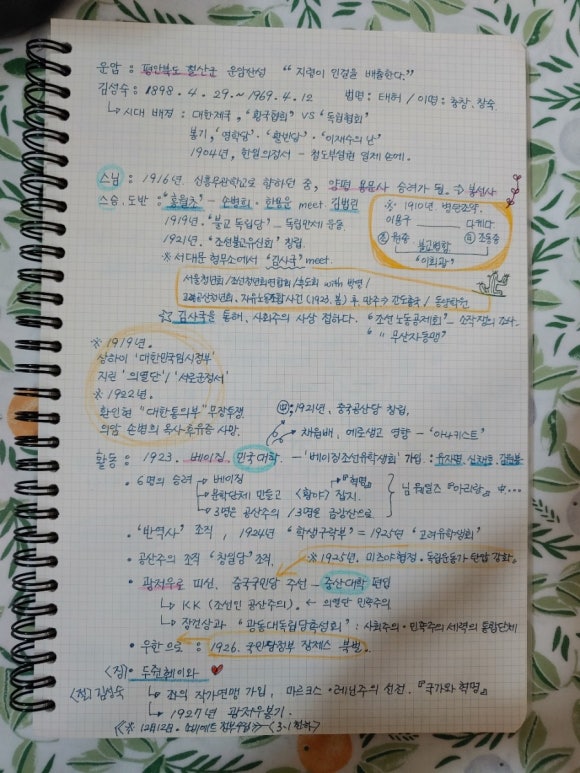 운암 : 평안북도 철산군 운암산성 " 지령이 인걸을 배출한다."
김성숙 : 1898. 4. 29. ~ 1969. 4. 12 법명 : 태허 / 이명 : 충창, 창숙.
↳ 시대 배경 : 대한제국, '황국협회' VS '독립협회'
봉기, '영학당' · '활빈당' · '이재수의 난'
1904년, 한일의정서 - 철도부설권 일제 손에.
스님 : 1916년. 신흥무관학교로 향하던 중, 양평 용문사 승려가 됨. ⇒ 봉선사
스승, 도반 : '홍월초' - 손병희. 한용운 meet. 김법린
※ 1910년. 병탄조약.
1919년. '불교 독립당' - 독립만세 운동
이용구 다케다
1921년. '조선불교유신회' 창립.
원종 불교병합 조동종
※ 서대문 형무소에서 '김사국' meet.
'이회광'
서울청년회 / 조선청년회연합회 / 속도회 with 박영 /
고려공산청년회, 자유노동조합사건 (1923. 봄) 후 만주수 간도홍국 / 동양학원
☆ 김사국을 통해, 사회주의 사상 접하다. "조선노동공제회" - 소작쟁의 조사.
" " 무산자동맹"
※ 1919년.
상하이 '대한민국임시정부'
지린 '의열단' / '서로군정서'
※ 1922년.
환인현 "대한통의부" 무장투쟁
의암 손병희 옥사후유증 사망.
中 : 1921년. 중국공산당 창립,
채원배, 에로센코 영향 - '아나키스트'
활동 : 1923. 베이징, 민국대학. - '베이징조선유학생회' 가입 : 유자명, 신채호, 김원봉
· 6명의 승려 베이징
문학단체 만들고 <황야> 잡지.
『혁명』
3명은 공산주의 / 3명은 금강산으로
님 웨일즈 『아리랑』 中...
· '반역사' 조직, 1924년 "학생구락부" = 1925년 '고려유학생회'
· 공산주의 조직 '창일당' 조직.
※ 1925년. 미쯔야협정. 독립운동가 탄압 강화.
· 광저우로 피신. 중국국민당 주선 - 중산대학 편입
↳ KK (조선인 공산주의). ← 의열단 민족주의
↳ 장건상과 "광동대독립당촉성회" : 사회주의 · 민족주의 세력의 통합단체
· 우한으로 : 1926. 국민당정부 장제스 북벌.
<처> · 두쥔훼이와 ♥
<전> 김성숙 ↳ 좌의 작가연맹 가입, 마르크스 · 레닌주의 선전. 『국가와 혁명』
↳ 1927년 광저우봉기.
※ 12월12일. 소비에트 정부수립 → <3일천하>